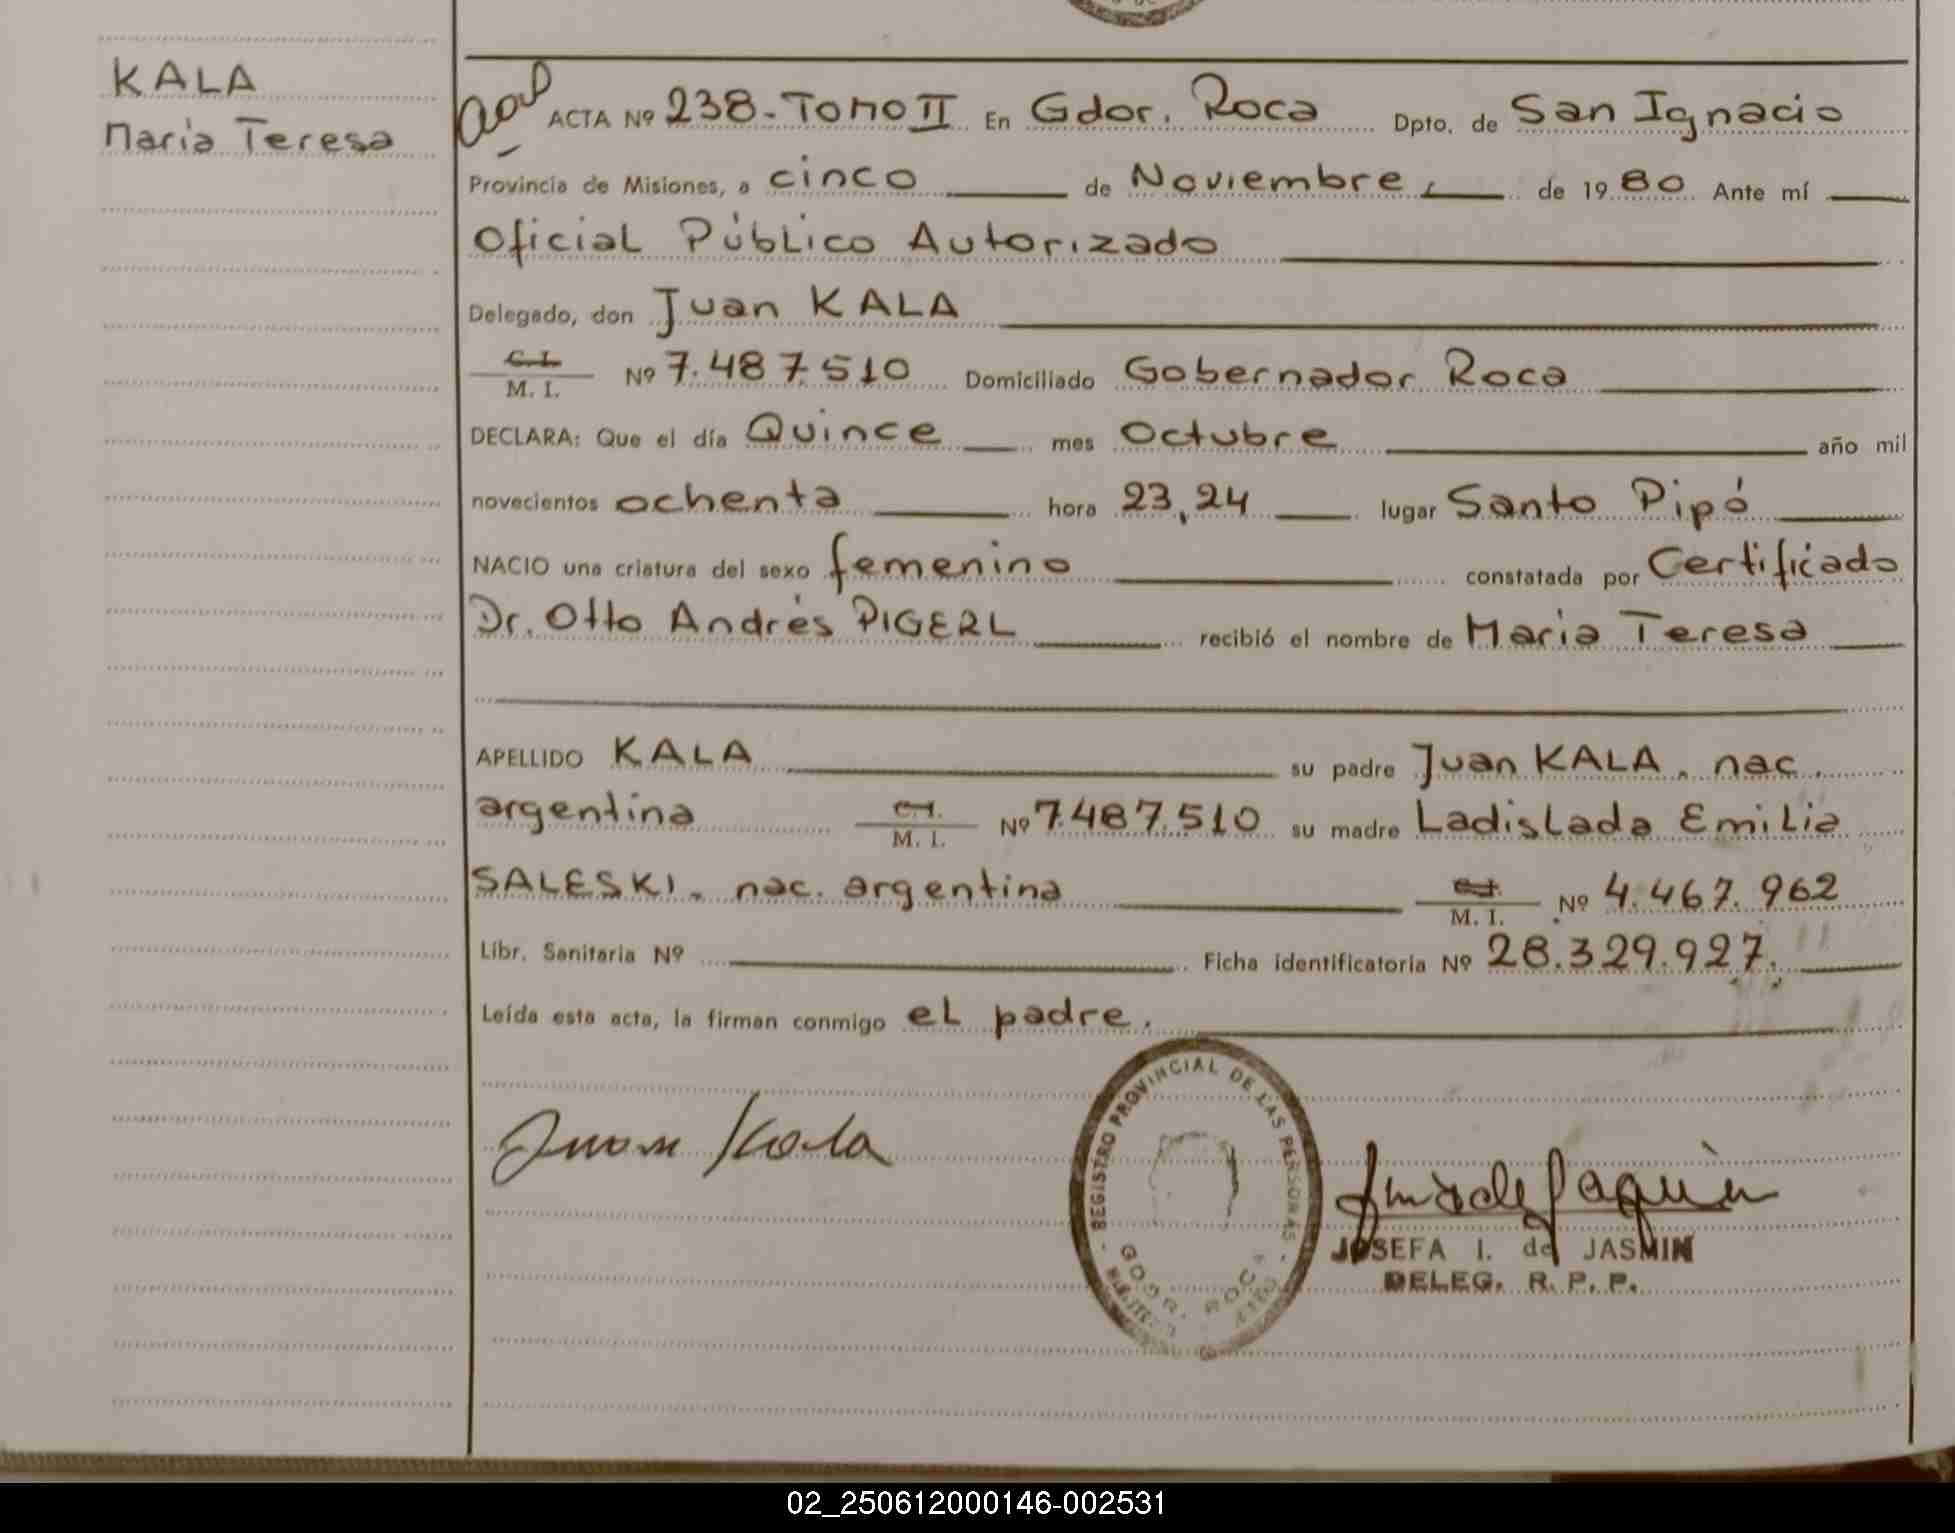 KALA
María Teresa
ACTA Nº 238-Tomo II En Gdor. Roca Dpto. de San Ignacio
Provincia de Misiones, a cinco de Noviembre, de 1980 Ante mí
Oficial Público Autorizado
Delegado, don Juan KALA
C. I.
M. I. Nº 7.487.510 Domiciliado Gobernador Roca
DECLARA: Que el día Quince mes Octubre año mil
novecientos ochenta hora 23,24 lugar Santo Pipó
NACIO una criatura del sexo femenino constatada por Certificado
Dr. Otto Andrés PIGERL recibió el nombre de María Teresa
APELLIDO KALA su padre Juan KALA. nac.
argentina C. I. M. I. Nº 7.487.510 su madre Ladislada Emilia
SALESKI. nac. argentina C. I. M. I. Nº 4.467.962
Libr. Sanitaria Nº Ficha identificatoria Nº 28.329.927.
Leída esta acta, la firman conmigo el padre.
Juan Kala
REGISTRO PROVINCIAL DE LAS PERSONAS
GDOR. ROCA
JOSEFA I. de JASMIN
DELEG. R. P. P.
02_250612000146-002531